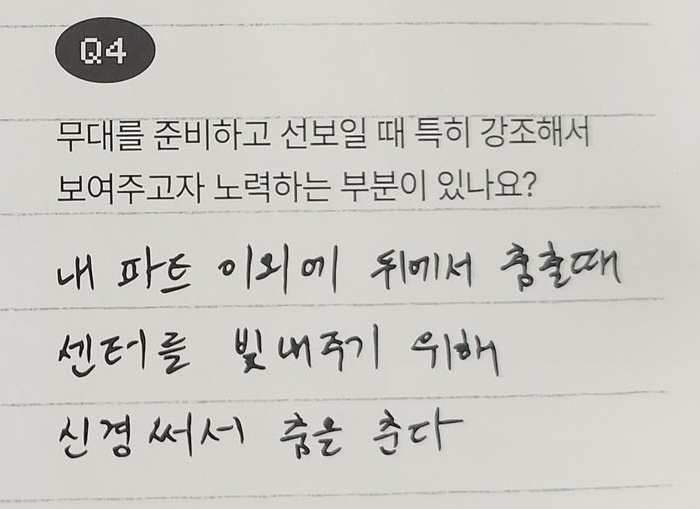 Q4
무대를 준비하고 선보일 때 특히 강조해서
보여주고자 노력하는 부분이 있나요?
내 파트 이외에 뒤에서 춤출때
센터를 빛내주기 위해
신경써서 춤을 춘다